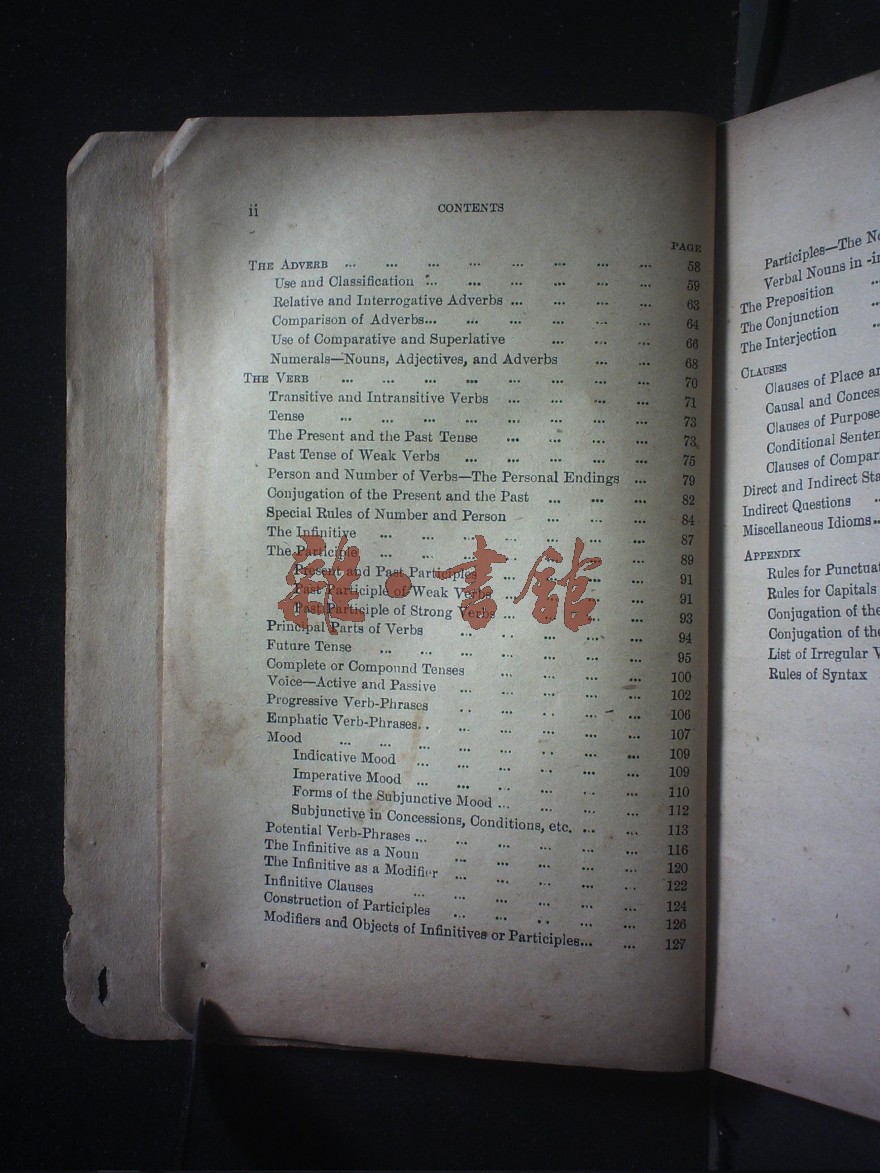 ii
CONTENTS
PAGE
THE ADVERB ... ... ... ... ... ... ... ... 58
Use and Classification ... ... ... ... ... ... 59
Relative and Interrogative Adverbs ... ... ... ... 63
Comparison of Adverbs... ... ... ... ... ... 64
Use of Comparative and Superlative ... ... ... 66
Numerals—Nouns, Adjectives, and Adverbs ... ... 68
THE VERB ... ... ... ... ... ... ... ... 70
Transitive and Intransitive Verbs ... ... ... ... 71
Tense ... ... ... ... ... ... ... ... 73
The Present and the Past Tense ... ... ... ... 73
Past Tense of Weak Verbs ... ... ... ... ... 75
Person and Number of Verbs—The Personal Endings ... 79
Conjugation of the Present and the Past ... ... ... 82
Special Rules of Number and Person ... ... ... 84
The Infinitive ... ... ... ... ... ... ... 87
The Participle ... ... ... ... ... ... ... 89
Present and Past Participles ... ... ... ... 91
Past Participle of Weak Verbs ... ... ... ... 91
Past Participle of Strong Verbs ... ... ... ... 93
Principal Parts of Verbs ... ... ... ... ... 94
Future Tense ... ... ... ... ... ... ... 95
Complete or Compound Tenses ... ... ... ... 100
Voice—Active and Passive ... ... ... ... ... 102
Progressive Verb-Phrases ... ... ... ... ... 106
Emphatic Verb-Phrases.. ... ... ... ... ... 107
Mood ... ... ... ... ... ... ... ... 109
Indicative Mood ... ... ... ... ... ... 109
Imperative Mood ... ... ... ... ... ... 110
Forms of the Subjunctive Mood ... ... ... ... 112
Subjunctive in Concessions, Conditions, etc. ... ... 113
Potential Verb-Phrases ... ... ... ... ... ... 116
The Infinitive as a Noun ... ... ... ... ... 120
The Infinitive as a Modifier ... ... ... ... ... 122
Infinitive Clauses ... ... ... ... ... ... 124
Construction of Participles ... ... ... ... ... 126
Modifiers and Objects of Infinitives or Participles... ... 127
雜·書館
Participles—The
Verbal Nouns in
The Preposition ...
The Conjunction ...
The Interjection ...
CLAUSES
Clauses of Place
Causal and
Clauses of Purpose
Conditional
Clauses of
Direct and Indirect
Indirect Questions ...
Miscellaneous Idioms...
APPENDIX
Rules for
Rules for Capitals
Conjugation of the
Conjugation of
List of Irregular
Rules of Syntax